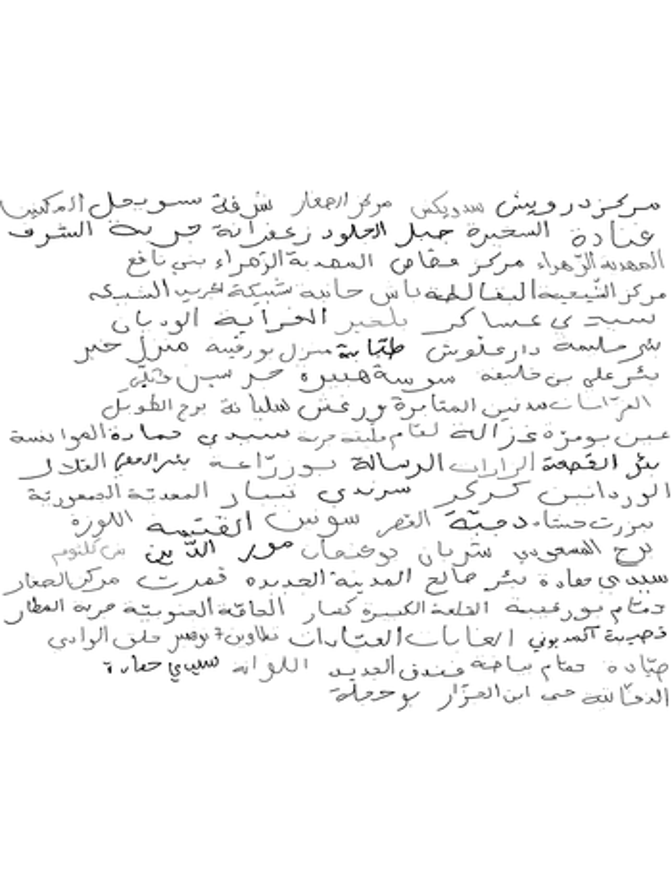 مركز درويش سدويكش مركز الصغار شرفة سويحل المركنين
عبادة السخيرة جبل الجلود زعفرانة جربة الشرف
المهدية الزهراء مركز عقاص المحمدية الزهراء بني نافع
مركز الشيحية البقالطة باش حانبة شبيكة لخريب الشبيكة
سيدي عساكر بلخير الحراية الوديان
بئر حليمة دار علوش طبابة منزل بورقيبة منزل حير
بئر علي بن خليفة سوسة هبيرة حر سين
العراسات مدنين المتابرة ورغش سليانة برج الطويل
عين بومرة غزالة لقام سيدي حمادة العوانسة
بئر القصعة الزارات الرسالة بوزراعة بئر الحفي التلال
الوردانين كركر سرندي نيبار المعدنية الجمهورية
بنزرت حشاد دجبة القصر سونين القتيمه اللوزة
برج المسعودي شربان بوعثمان مور الدين كلثوم
سيدي حمادة بئر صالح المدينة الجديدة قمرت مركز الصغار
حمام بورقيبة القلعة الكبيرة كسار الحافة الجنوبية جربة المطار
قصيبة المديوني الغابات العتبادات تطاوين 7 نوفمبر حلق الوادي
صيادة حمام بياضة فندق الجديد اللواتة سيدي حمادة
الدخانية حي ابن الجزار بوحجلة